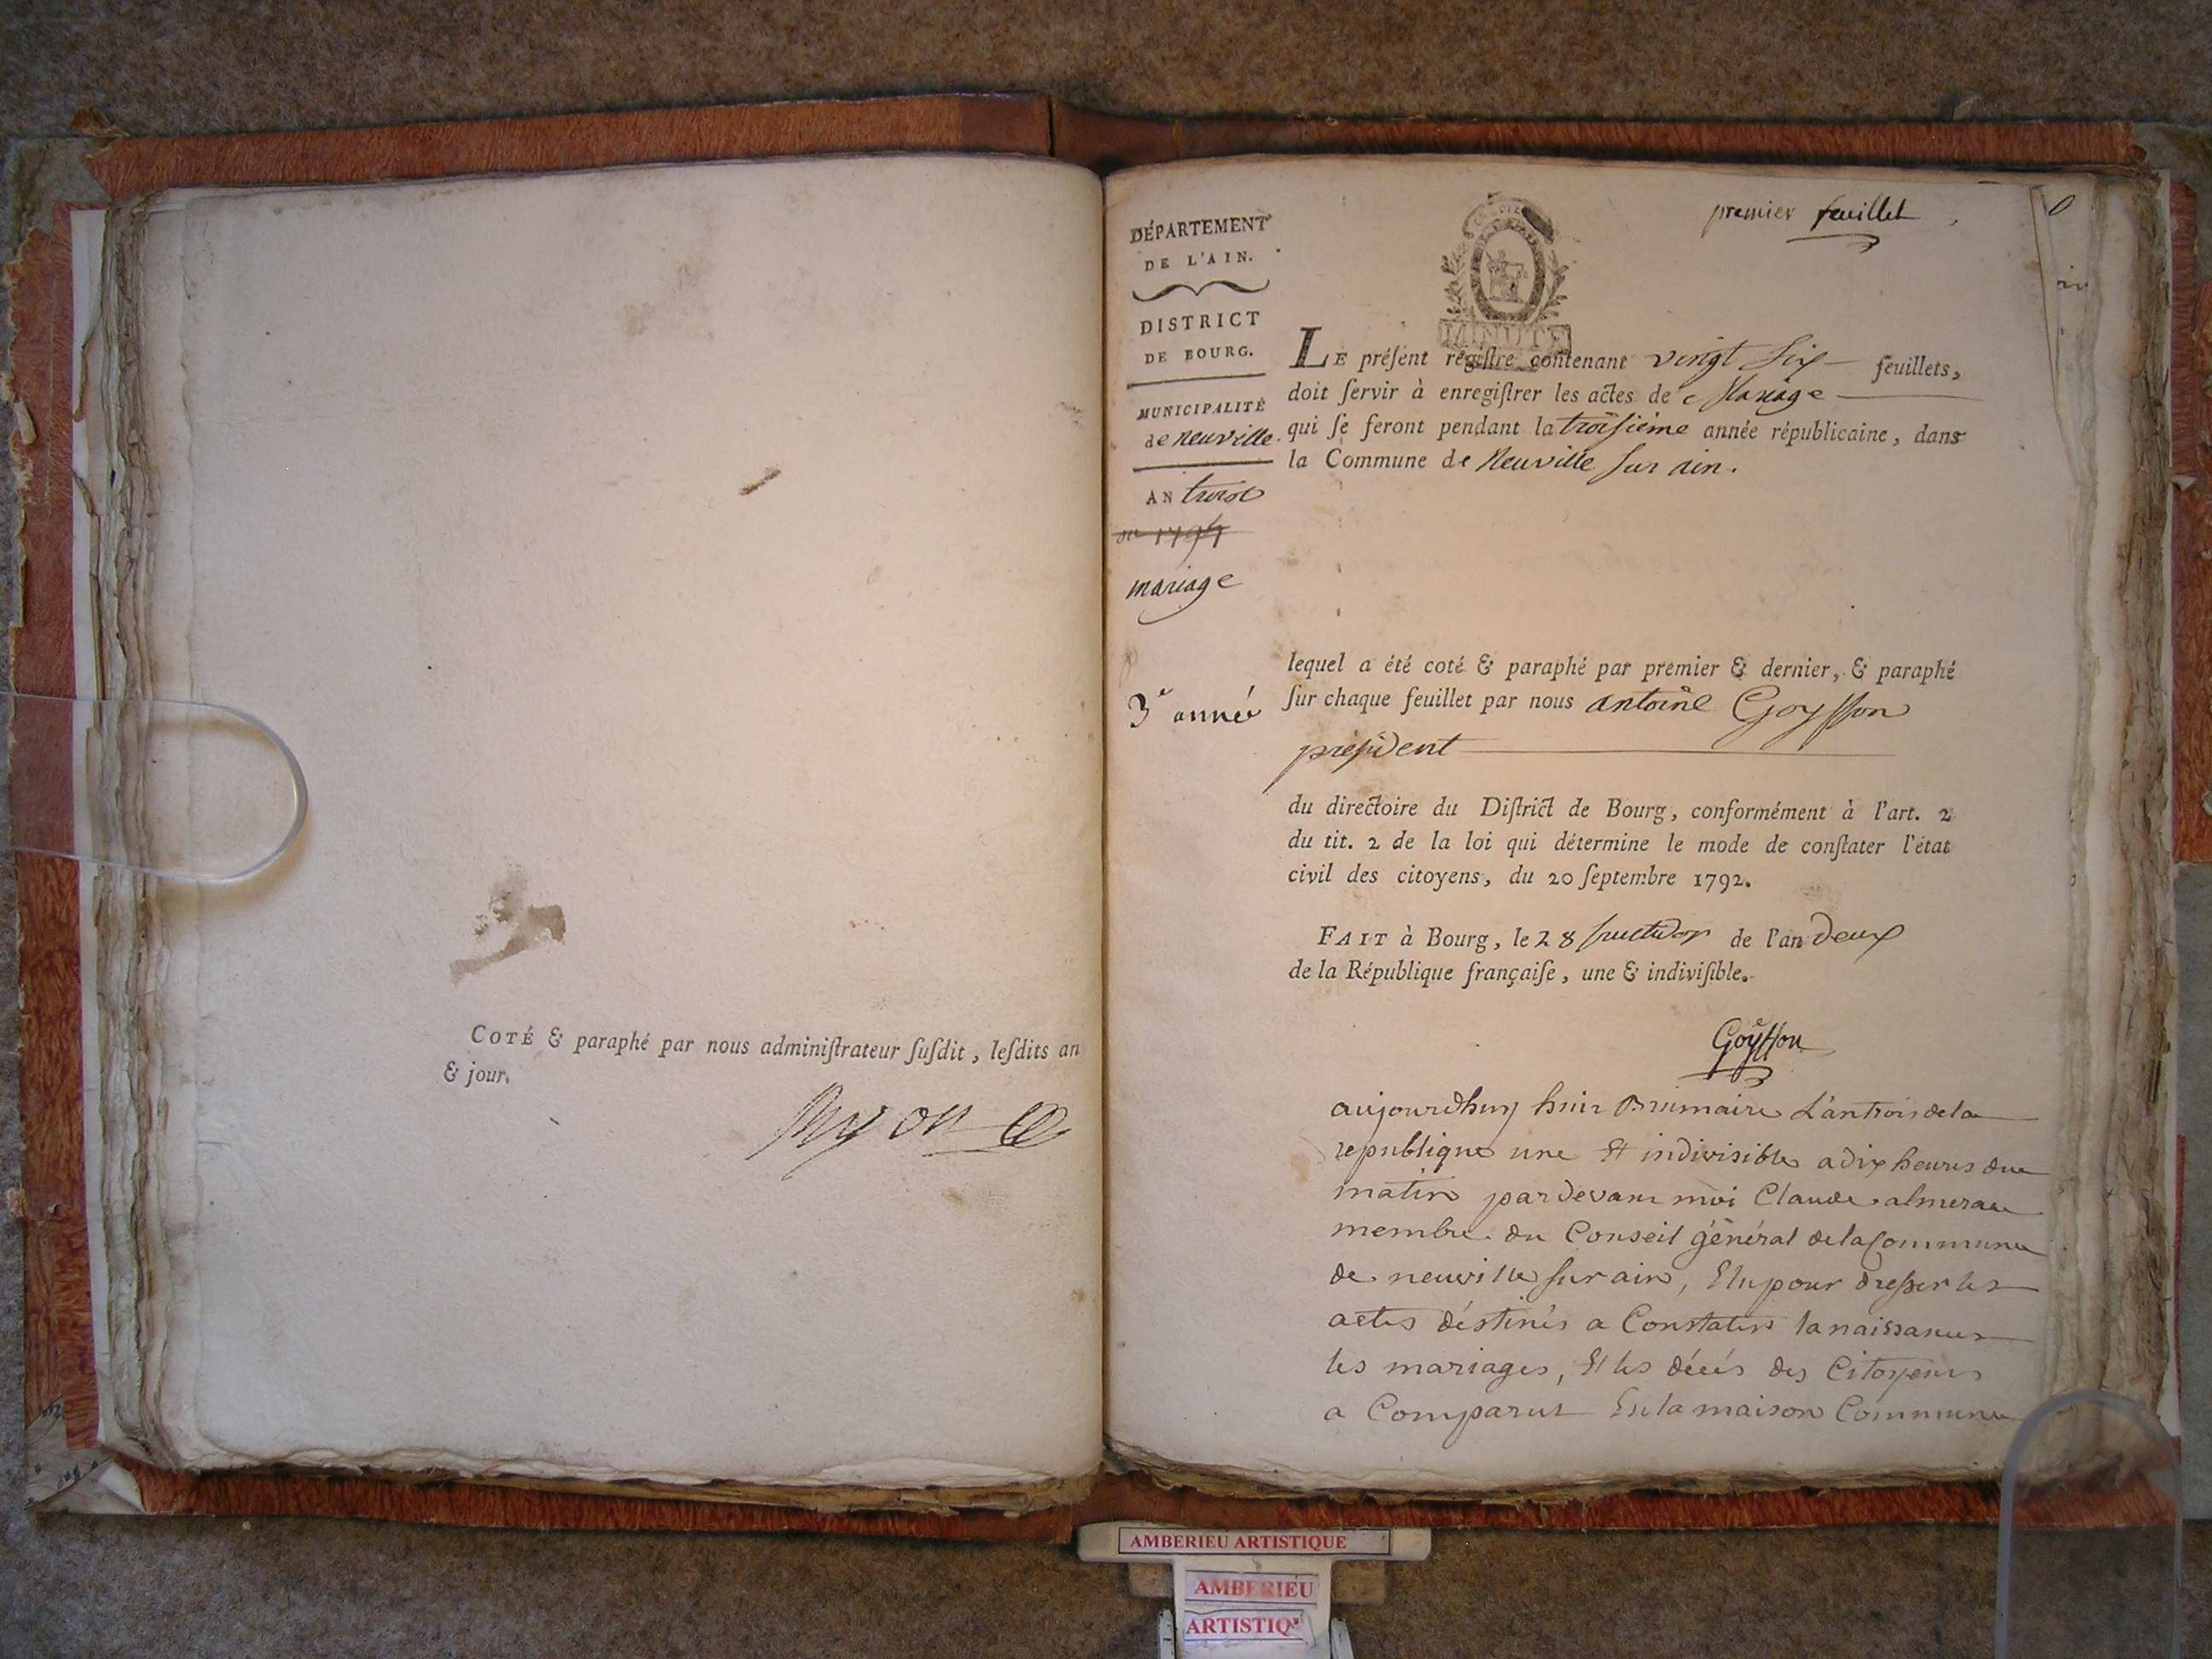 COTÉ & paraphé par nous adminiſtrateur ſuſdit, leſdits an
& jour.
premier feuillet
DÉPARTEMENT
DE L'AIN.
DISTRICT
DE BOURG.
MUNICIPALITÉ
de neuville
AN trois
ou 1794
mariage
3e année
MINUTE
LE préſent regiſtre contenant vingt ſix feuillets,
doit ſervir à enregiſtrer les actes de Mariage
qui ſe feront pendant la troiſieme année républicaine, dans
la Commune de Neuville ſur ain.
lequel a été coté & paraphé par premier & dernier, & paraphé
ſur chaque feuillet par nous antoine Goyſſon
preſident
du directoire du Diſtrict de Bourg, conformément à l'art. 2
du tit. 2 de la loi qui détermine le mode de conſtater l'état
civil des citoyens, du 20 ſeptembre 1792.
FAIT à Bourg, le 28 fructidor de l'an deux
de la République françaiſe, une & indiviſible.
Goyſſon
aujourdhuy huit Brumaire L'an trois de la
republique une Et indivisible a dix heures du
matin par devant moi Claude almeras
membre du Conseil général de la Commune
de neuville ſur ain, Elu pour dreſser les
actes déstinés a Constater la naissance
les mariages, Et les décés des Citoyens
a Comparut En la maison Commune
AMBERIEU ARTISTIQUE
AMBERIEU
ARTISTIQ